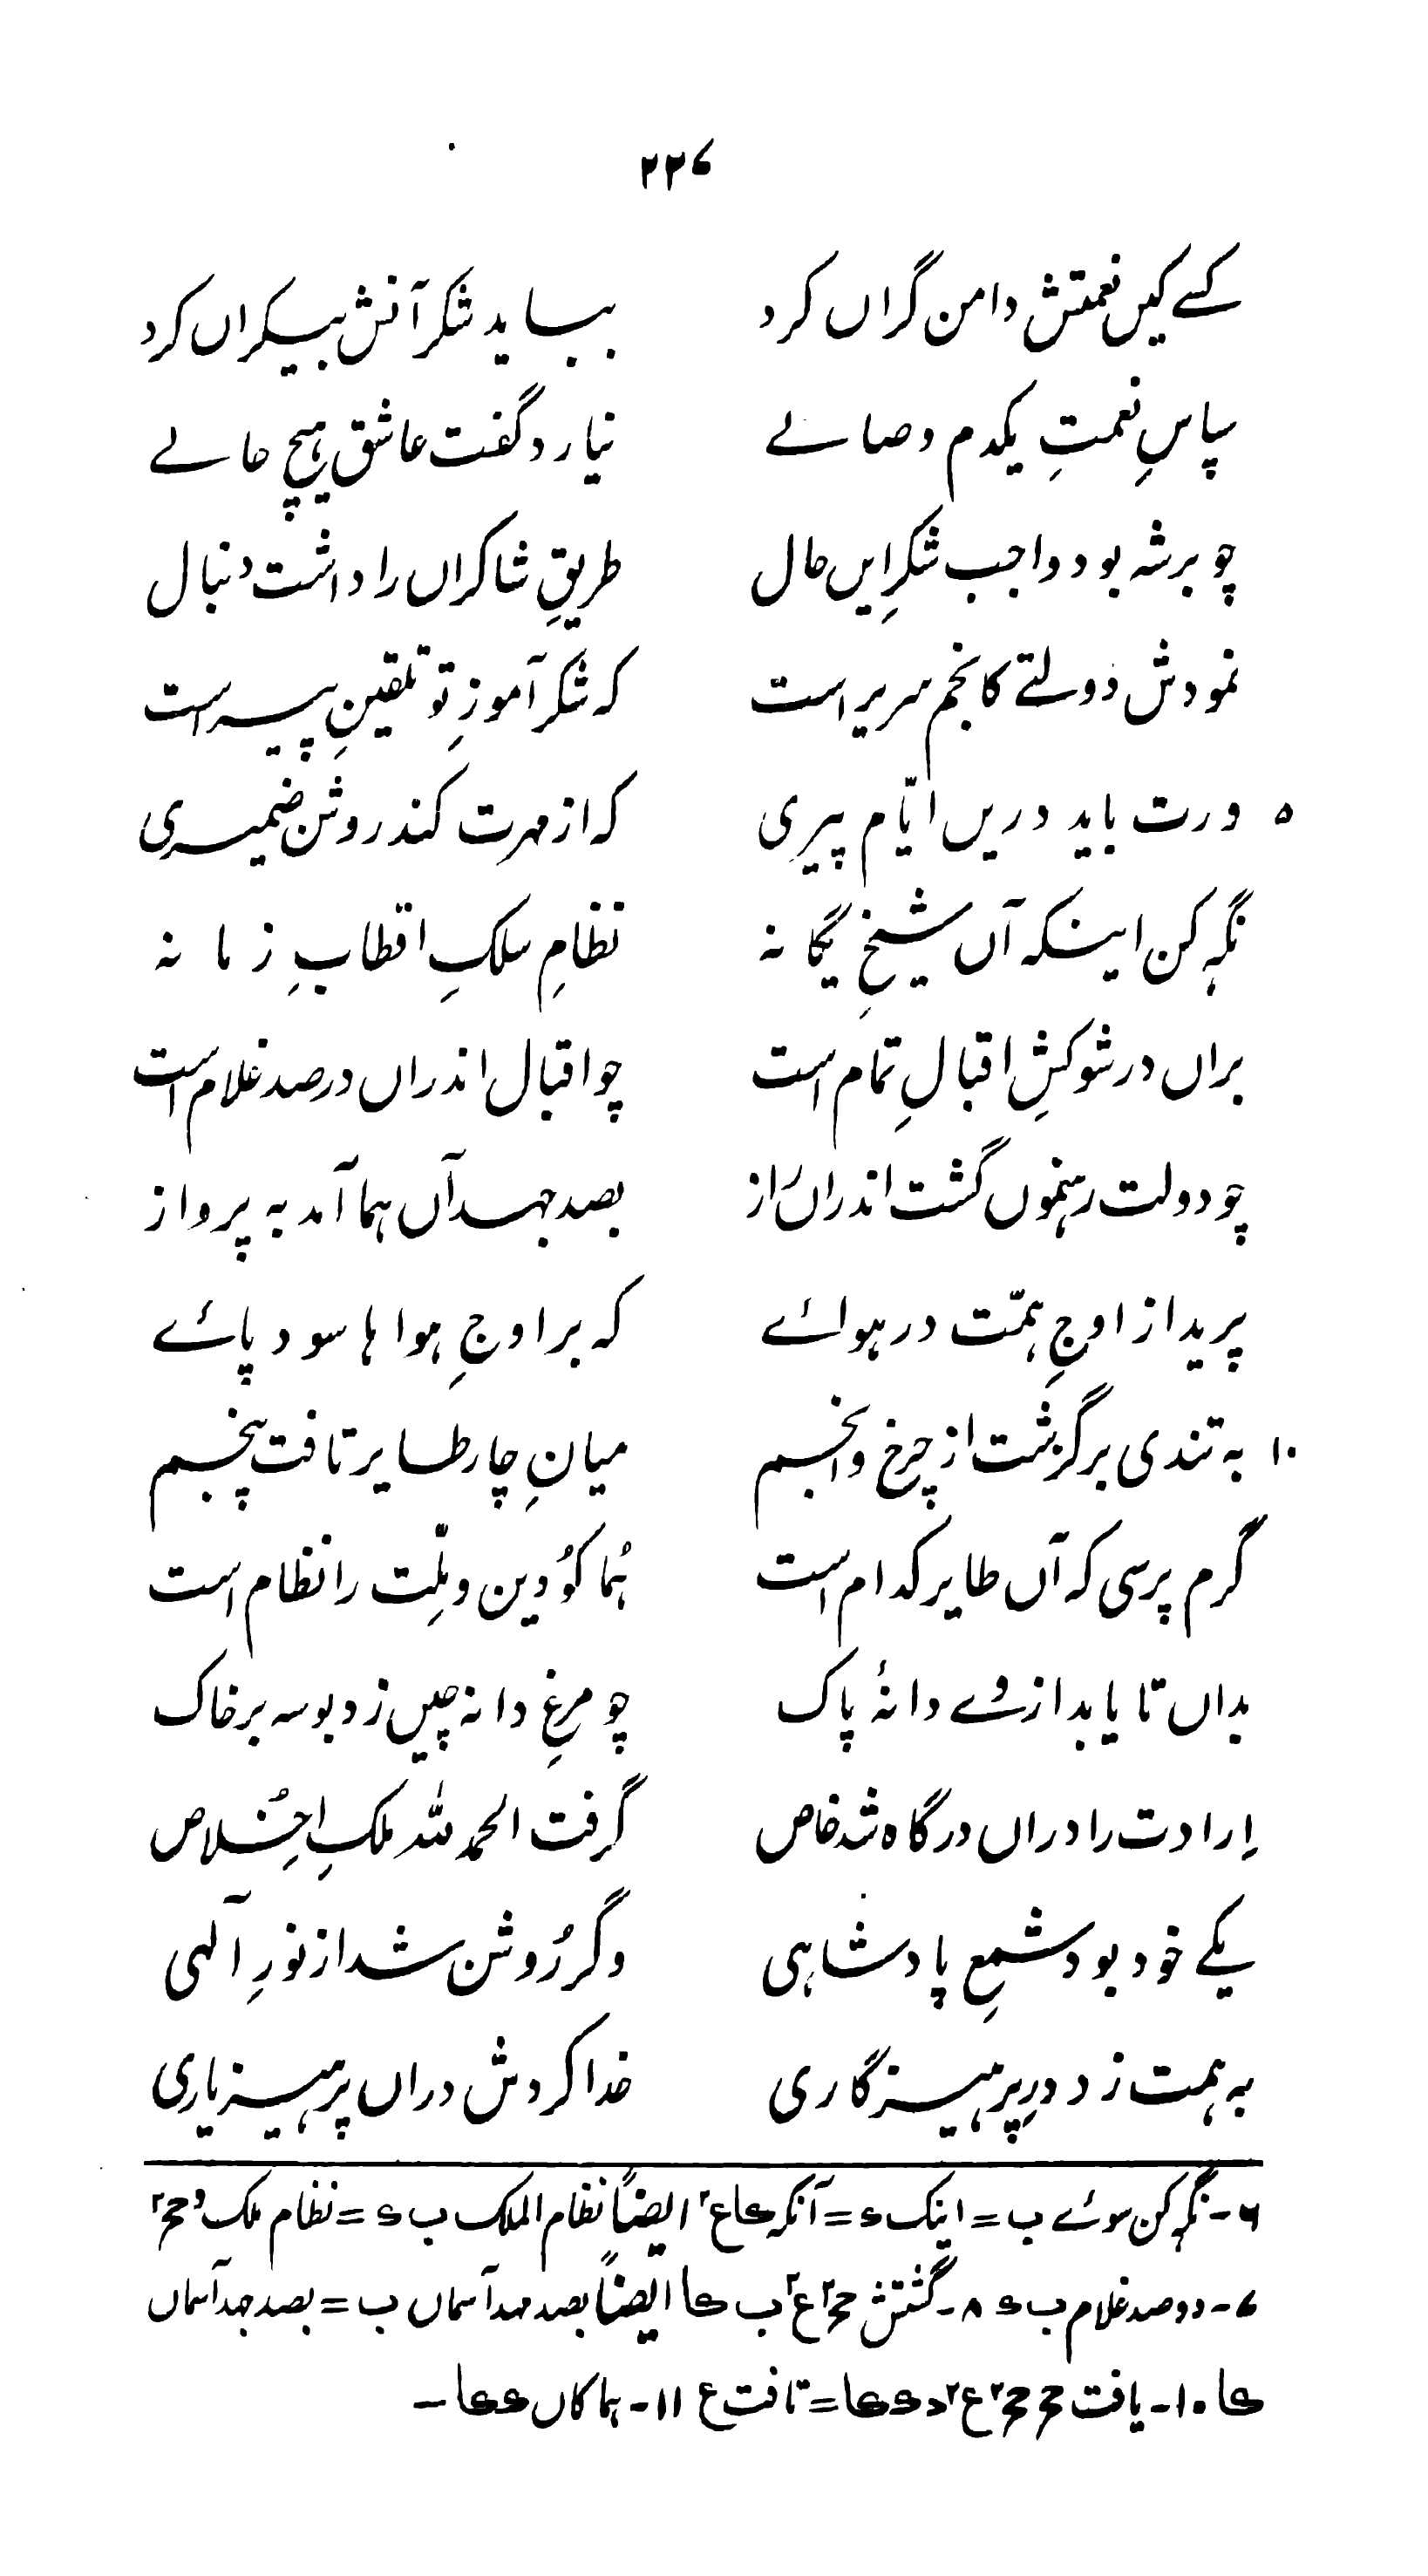 ۲۲۷
کسے کیں نعمتش دامن گراں کرد ببساید شکر آنش بیکراں کرد
سپاسِ نعمتِ یکدم وصالے نیارد گفت عاشق ہیچ حالے
چو برشہ بود واجب شکرِ ایں حال طریقِ شاکراں را داشت دنبال
نمودش دولتے کانجم سریر است کہ شکر آموزِ تو تلقینِ پیر است
۵ ورت باید دریں ایّام پیری کہ از مہرت کند روشن ضمیری
نگہ کن اینکہ آں شیخِ یگانہ نظامِ سلکِ اقطابِ زمانہ
براں در شو کشِ اقبالِ تمام است چو اقبال اندراں در صد غلام است
چو دولت رہنموں گشت اندراں راز بصد جہد آں ہما آمد بہ پرواز
پرید از اوجِ ہمّت در ہوائے کہ بر اوجِ ہوا ہا سود پائے
۱۰ بہ تندی برگزشت از چرخ و انجم میانِ چار طایر تافت پنجم
گرم پرسی کہ آں طایر کدام است ہُما کو دین و ملّت را نظام است
بداں تا یابد از وے دانۂ پاک چو مرغِ دانہ چیں زد بوسہ بر خاک
اِرادت را دراں درگاہ شد خاص گرفت الحمد للہ ملکِ اِخلاص
یکے خود بود شمعِ پادشاہی وگر رُوشن شد از نورِ آلہی
بہ ہمت زد درِ پرہیزگاری خدا کردش دراں پرہیز یاری
۶- نگہ کن سوئے ب = اینک ء = آنکہ کاع۲ ایضاً نظام الملک ب ء = نظام ملک و حح۲
۷- دو صد غلام ب ء ۸- گشتش حح۲ ع۲ ب کا ایضاً بصد مہد آسماں ب = بصد جہد آسماں
کا ۱۰- یافت حح حح۲ ع۲ د ء کا = تافت ع ۱۱- ہما کاں ء کا -